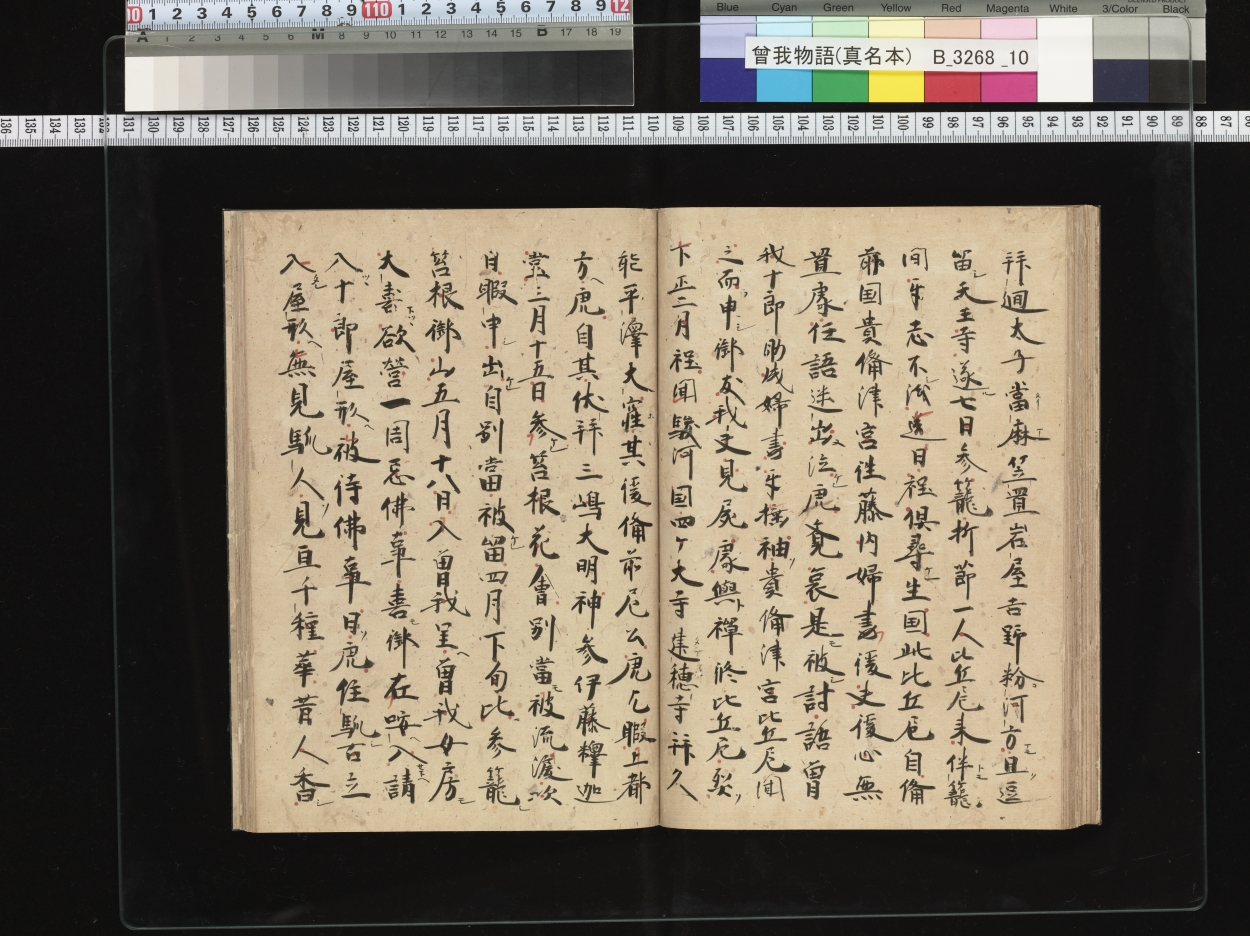 曾我物語(真名本) B_3268_10
Blue Cyan Green Yellow Red Magenta White 3/Color Black
拝廻太子當麻笠置岩屋吉野粉河方且逗
笛天王寺遂七日参籠折節一人比丘尼来伴籠
間牙志不浅送日程倶尋生国此比丘尼自備
前国貴備津宮性藤内婦妻後丈後心無
置處往語迷出泣虎竟哀是被討語曽
我十郎助成婦妻牙捶袖貴備津宮比丘尼聞
之而申御友我丈見死處與禅修比丘尼契
下正二月程聞駿河国四ケ大寺建穂寺拝久
能平澤大窪其後備前尼公虎乞暇上都
方虎自其伏拝三嶋大明神参伊藤釋迦
堂三月十五日参筥根花會別當被流涙次
日暇申出自別當被留四月下旬比参籠
筥根御山五月十八日入曽我里曽我女房
大喜欲営一周忌佛事善御在唉入請
入十郎屋形被待佛事日虎住馴古立
入屋形無見馴人見亘千種華昔人香